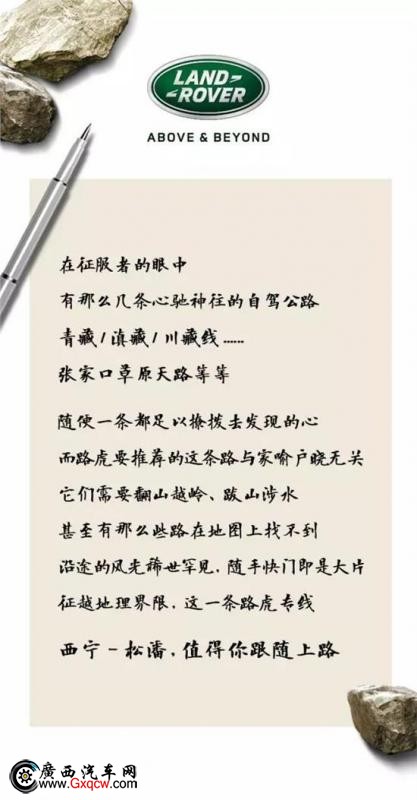 LAND
ROVER
ABOVE & BEYOND
在征服者的眼中
有那么几条心驰神往的自驾公路
青藏/滇藏/川藏线……
张家口草原天路等等
随便一条都足以撩拨去发现的心
而路虎要推荐的这条路与家喻户晓无关
它们需要翻山越岭、跋山涉水
甚至有那么些路在地图上找不到
沿途的风光稀世罕见,随手快门即是大片
征越地理界限,这一条路虎专线
西宁-松潘,值得你跟随上路
廣西汽车网
www.Gxqcw.com